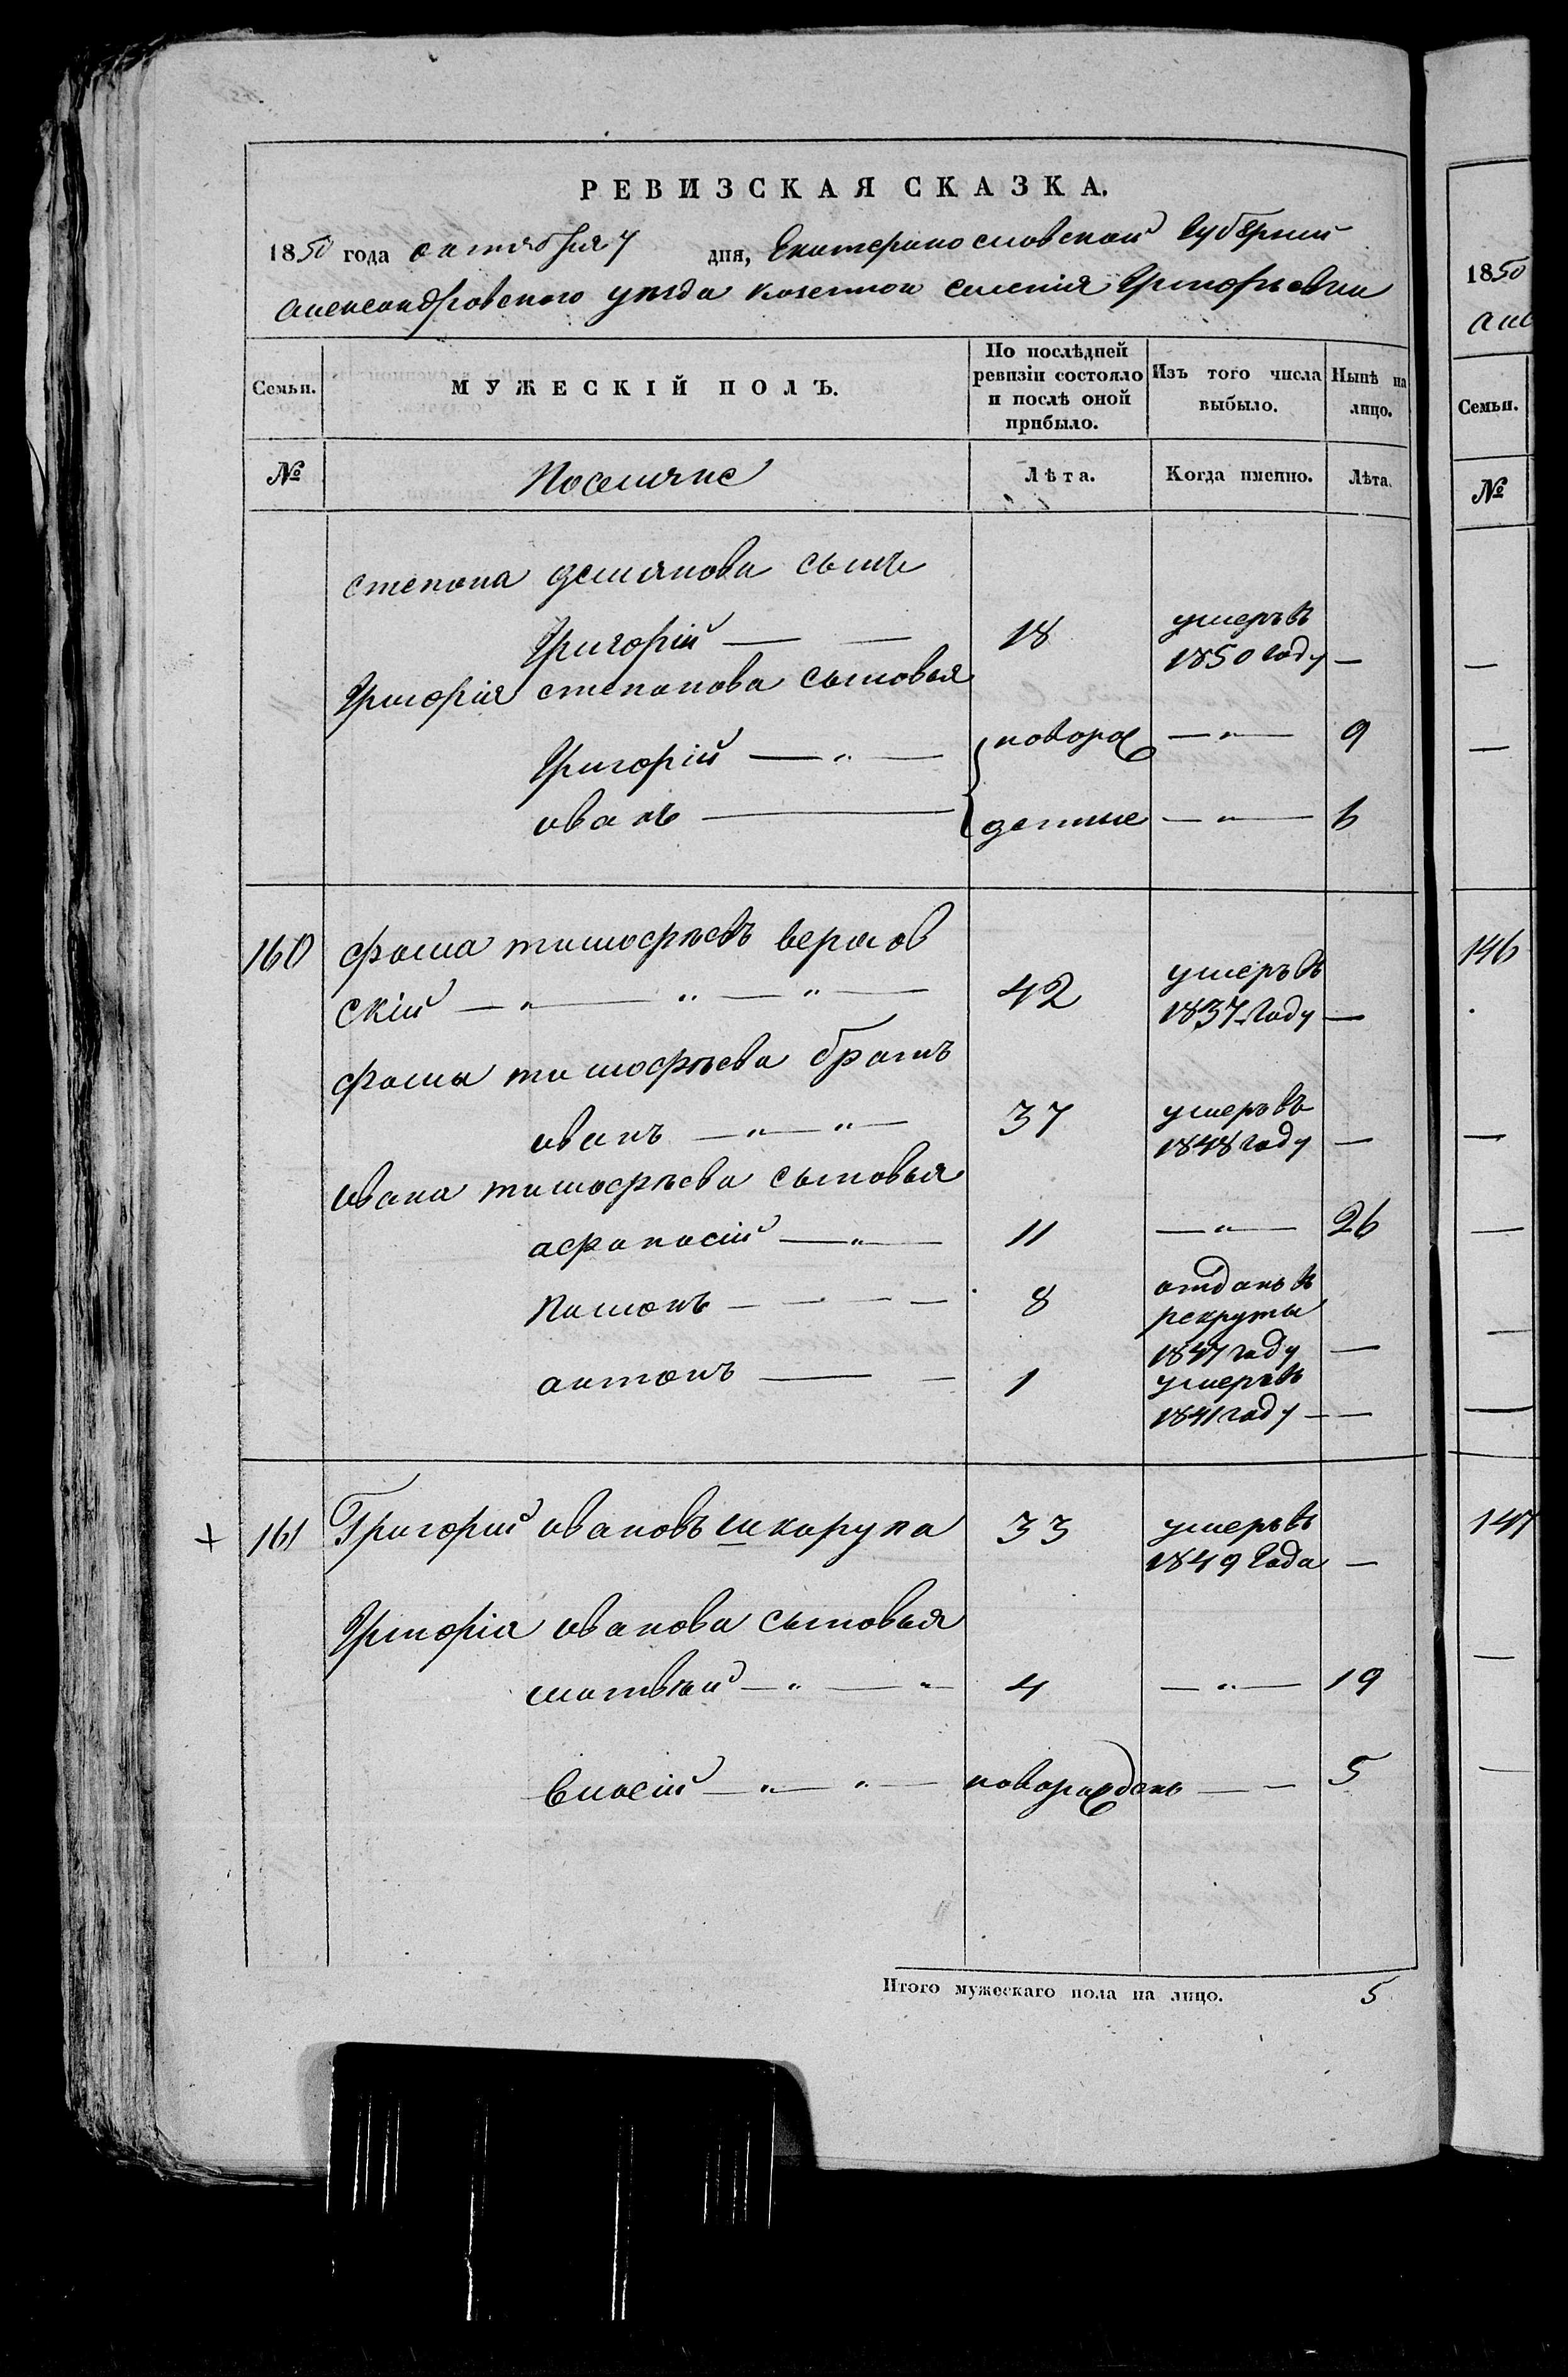 РЕВИЗСКАЯ СКАЗКА.
1850 года октября 7 дня, Екатеринославской Губернии
Александровского уезда казенного селения Григорьевки
Семьи. МУЖЕСКІЙ ПОЛЪ. По послѣдней ревизіи состояло и послѣ оной прибыло. Изъ того числа выбыло. Нынѣ на лицо.
№ Поселяне Лѣта. Когда именно. Лѣта.
степана демянова сынъ
Григорій — — 18 умеръ въ 1850 году —
Григорія степанова сыновья
Григорій — " — новорож — " — 9
иванъ — денные — " — 6
160 фома тимофѣевъ
скій — " — " — " — 42 умеръ въ 1837 году —
фомы тимофѣева братъ
иванъ — " — " — 37 умеръ въ 1848 году —
ивана тимофѣева сыновья
афанасій — " — 11 — " — 26
— — — — 8 отданъ въ рекруты 1847 году —
антонъ — — 1 умеръ въ 1841 году — —
+ 161 Григорий ивановъ шкарупа 33 умеръ въ 1849 года —
Григорія иванова сыновья
матвѣй — " — " 4 — " — 19
— " — " — новорожденъ — — 5
Итого мужескаго пола на лицо. 5
1850
Семьи.
№
146
147